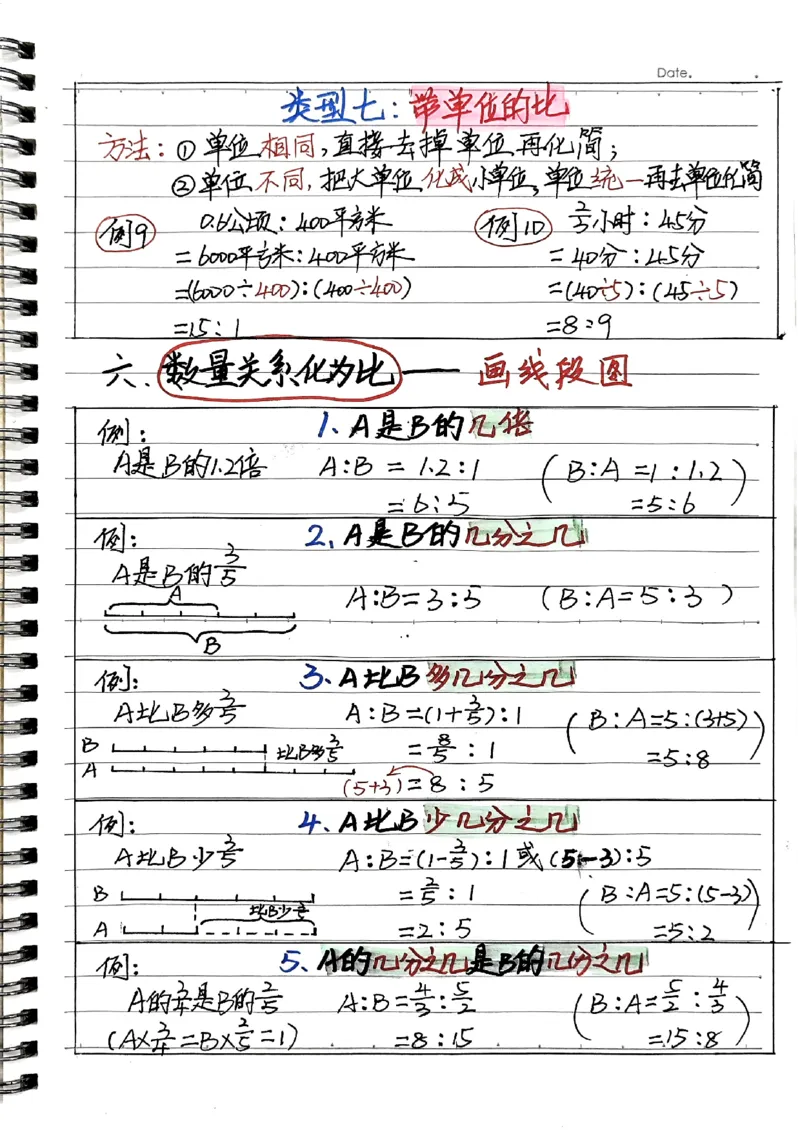 Date.
类型七：带单位的比
方法：①单位相同，直接去掉单位再化简；
②单位不同，把大单位化成小单位，单位统一再去单位化简
例9
0.6公顷：400平方米
=6000平方米：400平方米
=(6000÷400)：(400÷400)
=15：1
例10
2/3小时：45分
=40分：45分
=(40÷5)：(45÷5)
=8：9
六、数量关系化为比——画线段图
例：
1. A是B的几倍
A是B的1.2倍
A:B = 1.2:1
(B:A =1:1.2
=6:5
=5:6)
例：
2、A是B的几分之几
A是B的3/5
A
B
A:B=3:5
(B:A=5:3)
例：
3、A比B多几分之几
A比B多3/5
A:B=(1+3/5):1
(B:A=5:(3+5)
B
比B多3/5
=8/5:1
=5:8)
A
(5+3)=8:5
例：
4、A比B少几分之几
A比B少3/5
A:B=(1-3/5):1或(5-3):5
B
=2/5:1
(B:A=5:(5-3)
比B少3/5
A
=2:5
=5:2)
例：
5、A的几分之几是B的几分之几
A的3/4是B的2/5
A:B=4/3:5/2
(B:A=5/2:4/3
(A×3/4=B×2/5=1)
=8:15
=15:8)